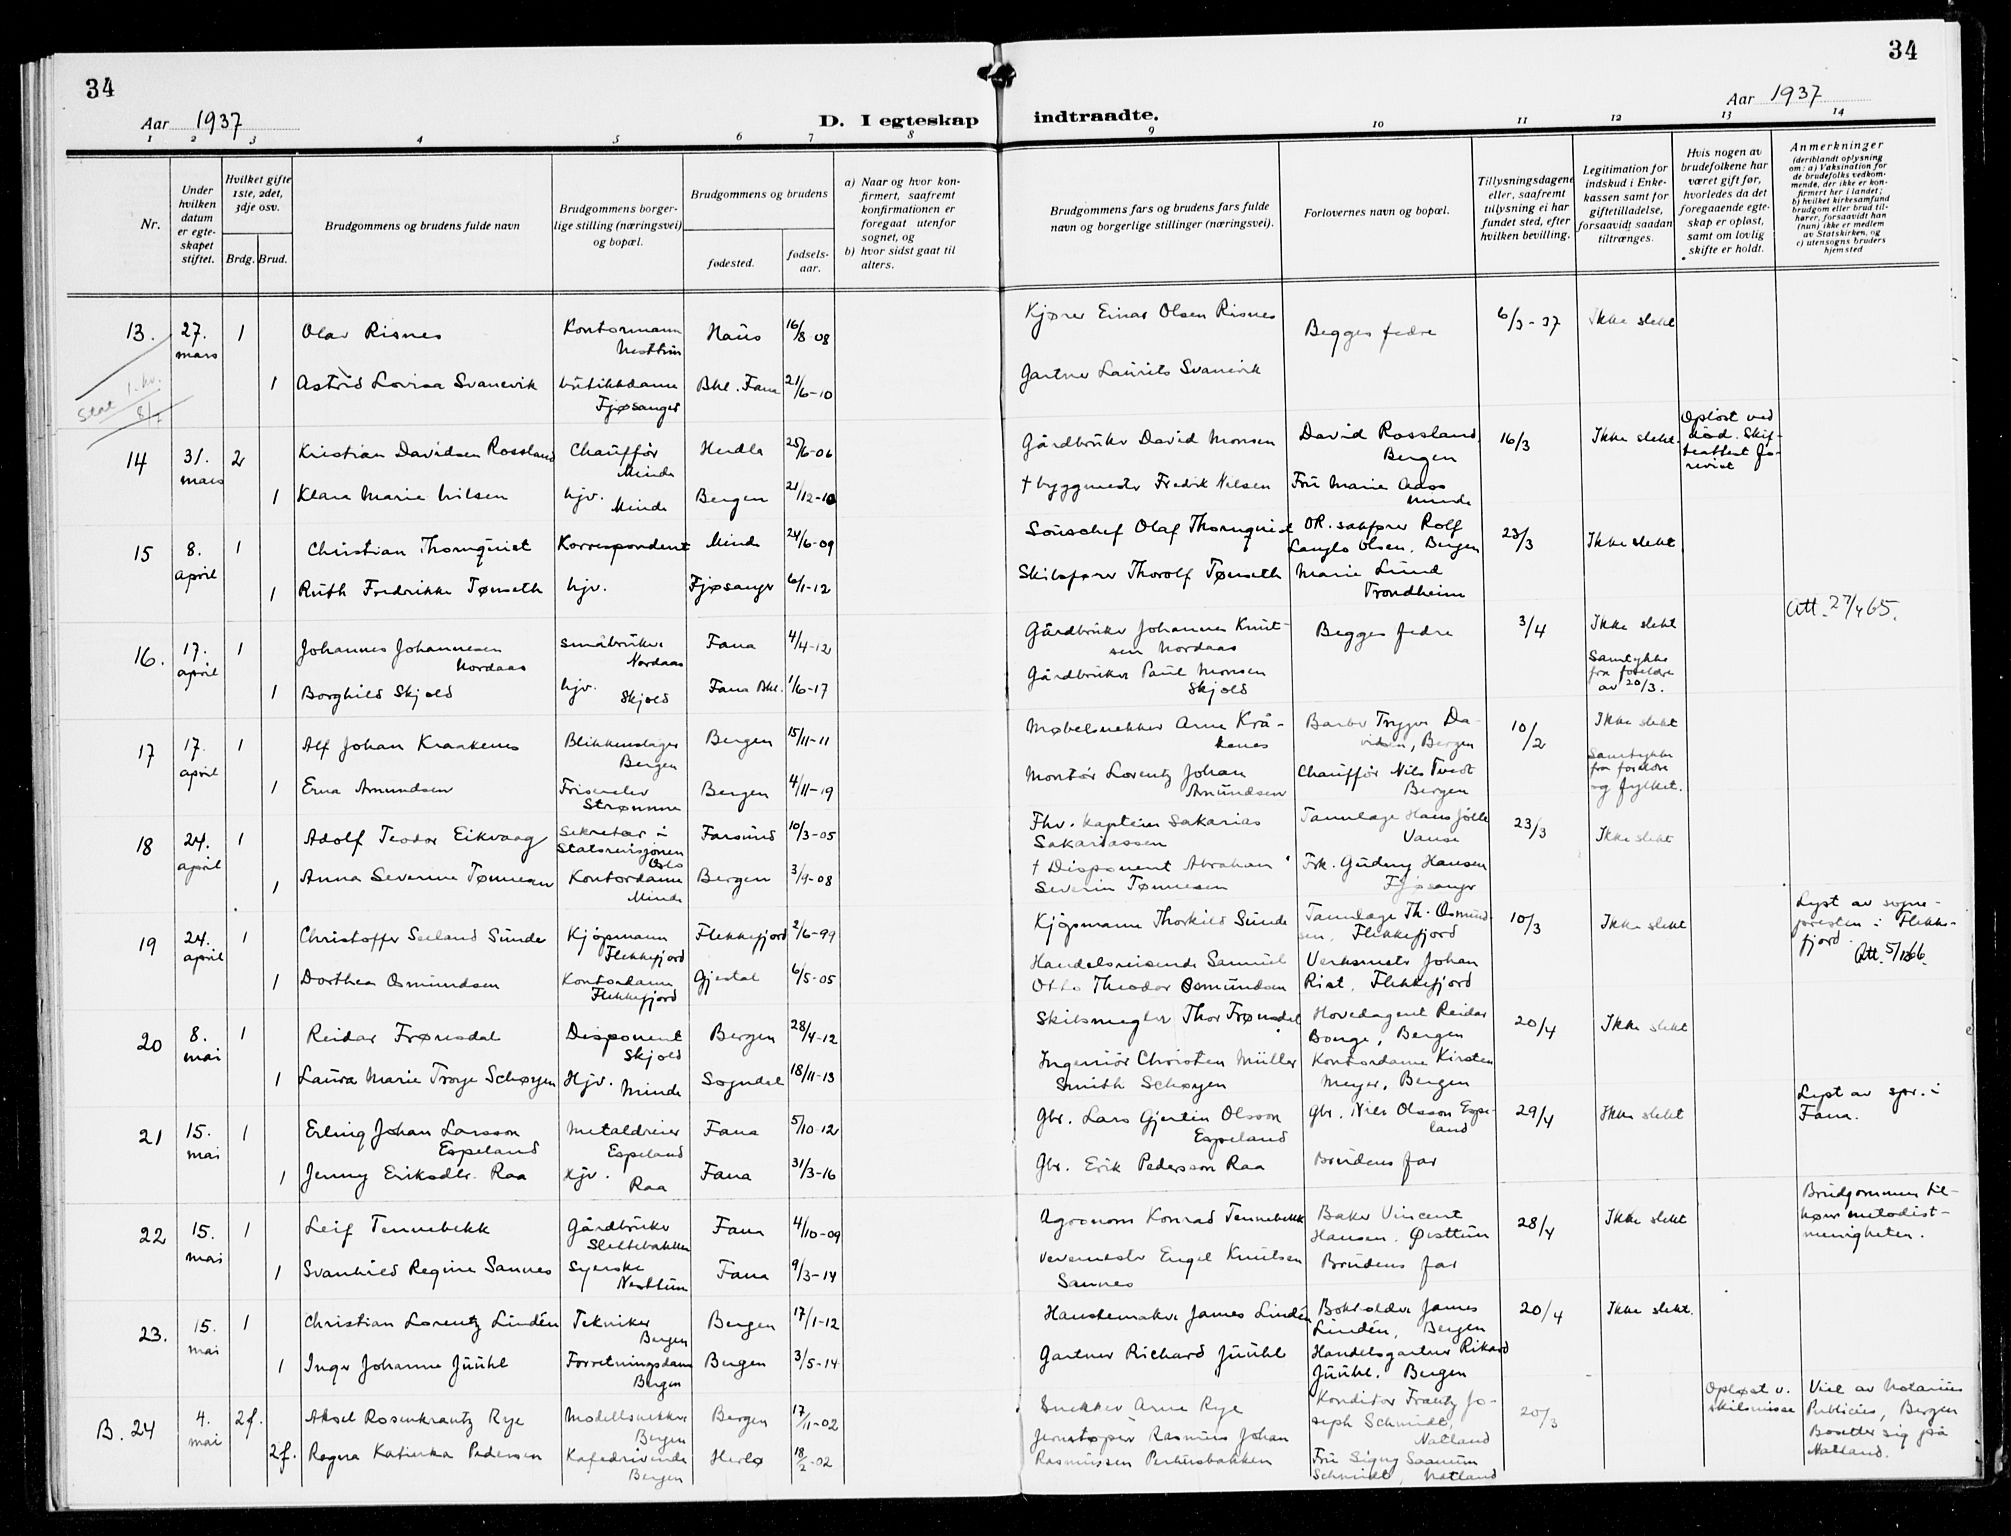 34
34
Aar 1937
D. I egteskap indtraadte.
Aar 1937
1 2 3 4 5 6 7 8 9 10 11 12 13 14
Nr.
Under hvilken datum er egteskapet stiftet.
Hvilket gifte 1ste, 2det, 3dje osv.
Brdg. Brud.
Brudgommens og brudens fulde navn
Brudgommens borgerlige stilling (næringsvei) og bopæl.
Brudgommens og brudens
fødested.
fødselsaar.
a) Naar og hvor konfirmert, saafremt konfirmationen er foregaat utenfor sognet, og
b) hvor sidst gaat til alters.
Brudgommens fars og brudens fars fulde navn og borgerlige stillinger (næringsvei).
Forlovernes navn og bopæl.
Tillysningsdagene eller, saafremt tillysning ei har fundet sted, efter hvilken bevilling.
Legitimation for indskud i Enkekassen samt for giftetilladelse, forsaavidt saadan tiltrænges.
Hvis nogen av brudefolkene har været gift før, hvorledes da det foregaaende egteskap er opløst, samt om lovlig skifte er holdt.
Anmerkninger
(deriblandt oplysning om: a) Vaksination for de brudefolks vedkommende, der ikke er konfirmert her i landet; b) hvilket kirkesamfund brudgom eller brud tilhører, forsaavidt han (hun) ikke er medlem av Statskirken, og c) utensogns bruders hjemsted
13. 27. mars 1 Olav Risnes Kontormann Nesttun Haus 16/8 08 Kjører Einar Olsen Risnes Begges fedre 6/3-37 Ikke slekt
1 Astrid Lovisa Svanevik butikkdame Fjøsanger Bkl. Fana 21/6-10 Gartner Laurits Svanevik
Stat 1. kv.
14 31. mars 2 Kristian Davidsen Rossland Chauffør Minde Herdla 25/6-06 Gårdbruker David Monsen David Rossland, Bergen 16/3 Ikke slekt. Opløst ved død. Skifteattest forevist
1 Klara Marie Nilsen hjv. Minde Bergen 21/12-10 † byggmester Fredrik Nilsen Fru Marie Aass Minde
15 8. april 1 Christian Thornquist Korrespondent Minde 24/6-09 Souschef Olaf Thornquist OR. sakfører Rolf Langlo Olsen, Bergen 23/3 Ikke slekt
1 Ruth Fredrikke Tønseth hjv. Fjøsanger 6/1-12 Skibsfører Thorolf Tønseth Marie Lund Trondheim
16. 17. april 1 Johannes Johannesen Nordaas småbruker Nordaas Fana 4/4-12 Gårdbruker Johannes Knutsen Nordaas Begges fedre 3/4 Ikke slekt Att. 27/4 65.
1 Borghild Skjold hjv. Skjold Fana Bkl. 1/6-17 Gårdbruker Paul Monsen Skjold Samtykke fra foreldre av 20/3.
17 17. april 1 Alf Johan Kraakenes Blikkenslager Bergen Bergen 15/11-11 Møbelsnekker Arne Kråkenes Barber Trygve Davidsen, Bergen 10/2 Ikke slekt
1 Erna Amundsen Friserelev Strømme Bergen 4/11-19 Montør Lorentz Johan Amundsen Chauffør Nils Tvedt Bergen Samtykke fra foreldre og fylket.
18 24. april 1 Adolf Teodor Eikvaag Sekretær i Statsrevisjonen Oslo Farsund 10/3-05 Fhv. kaptein Sakarias Sakariassen Tannlæge Hans Jølle Vanse 23/3 Ikke slekt
1 Anna Severine Tønnesen Kontordame Minde Bergen 3/9-08 † Disponent Abraham Severin Tønnesen Frk. Gudny Hansen Fjøsanger
19 24. april 1 Christoffer Seiland Sunde Kjøpmann Flekkefjord Flekkefjord 2/6-99 Kjøpmann Thorkild Sunde Tannlæge Th. Osmundsen, Flekkefjord 10/3 Ikke slekt Lyst av sognepresten i Flekkefjord. Att. 5/1266.
1 Dorthea Osmundsen Kontordame Flekkefjord Gjestal 6/5-05 Handelsreisende Samuel Otto Theodor Osmundsen Verksmstr Johan Rist, Flekkefjord
20 8. mai 1 Reidar Frønsdal Disponent Skjold Bergen 28/4-12 Skibsmegler Thor Frønsdal Hovedagent Reidar Bonge, Bergen 20/4 Ikke slekt
1 Laura Marie Troye Schøyen Hjv. Minde Sogndal 18/11-13 Ingeniør Christen Müller Smith Schøyen Kontordame Kirsten Meyer, Bergen
21 15. mai 1 Erling Johan Larsson Espeland Metaldreier Espeland Fana 5/10-12 Gbr. Lars Gjertin Olsson Espeland Gbr. Nils Olsson Espeland 29/4 Ikke slekt Lyst av spr. i Fana.
1 Jenny Eriksdtr. Raa Hjv. Raa Fana 31/3-16 Gbr. Erik Pedersson Raa Brudens far
22 15. mai 1 Leif Tennebekk Gårdbruker Slettebakken Fana 4/10-09 Agronom Konrad Tennebekk Baker Vincent Hansen. Øisttun 28/4 Ikke slekt Brudgommen tilhører metodistmenigheten.
1 Svanhild Regine Sannes Syerske Nesttun Fana 9/3-14 Vevemester Engel Knutsen Sannes Brudens far
23. 15. mai 1 Christian Lorentz Lindén Tekniker Bergen Bergen 17/1-12 Hanskemaker James Lindén Bokholder James Lindén, Bergen 20/4 Ikke slekt.
1 Inger Johanne Juuhl Forretningsdame Bergen Bergen 3/5-14 Gartner Richard Juuhl Handelsgartner Rikard Juuhl. Bergen
B. 24 4. mai 2f. Aksel Rosenkrantz Rye Modellsnekker Bergen Bergen 17/11-02 Snekker Arne Rye Konditor Frantz Joseph Schmidt, Natland 20/3 Opløst v. skilsmisse Viel av Notarius Publicus, Bergen Bosetter sig på Natland.
2f. Ragna Katinka Pedersen Kafedrivende Bergen Herlø 18/2-02 Jernstøper Rasmus Johan Rasmussen Perhusbakken Fru Signy Saanum Schmidt, Natland